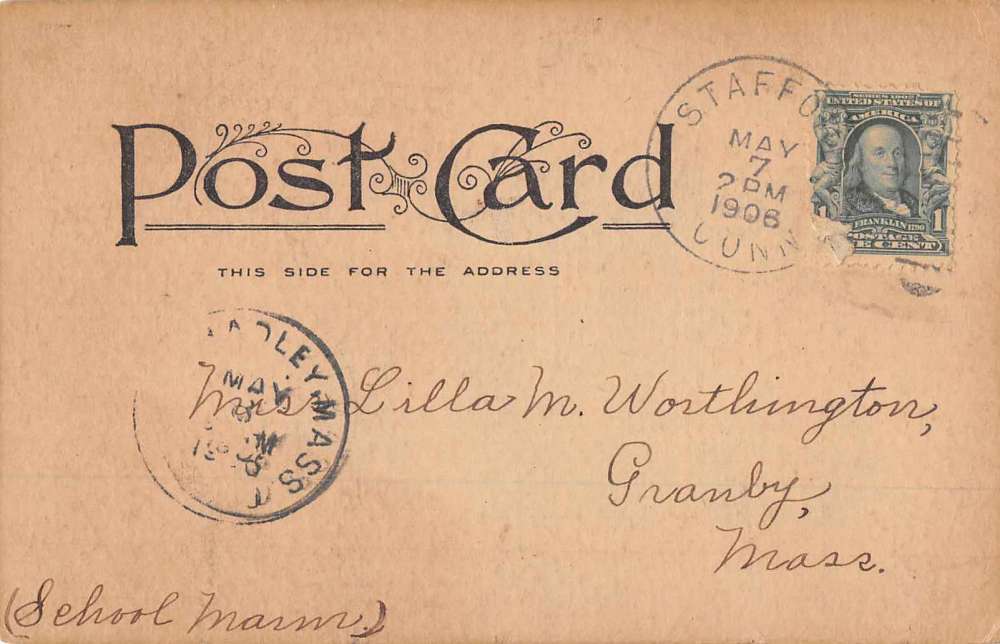 Post Card
THIS SIDE FOR THE ADDRESS
STAFFO
MAY
7
2 PM
1906
CONN
SERIES 1902
UNITED STATES OF
AMERICA
FRANKLIN 1790
POSTAGE
E CENT
1
ADLEY MASS.
MAY
8
Miss Lilla M. Worthington,
Granby,
Mass.
(School Marm.)